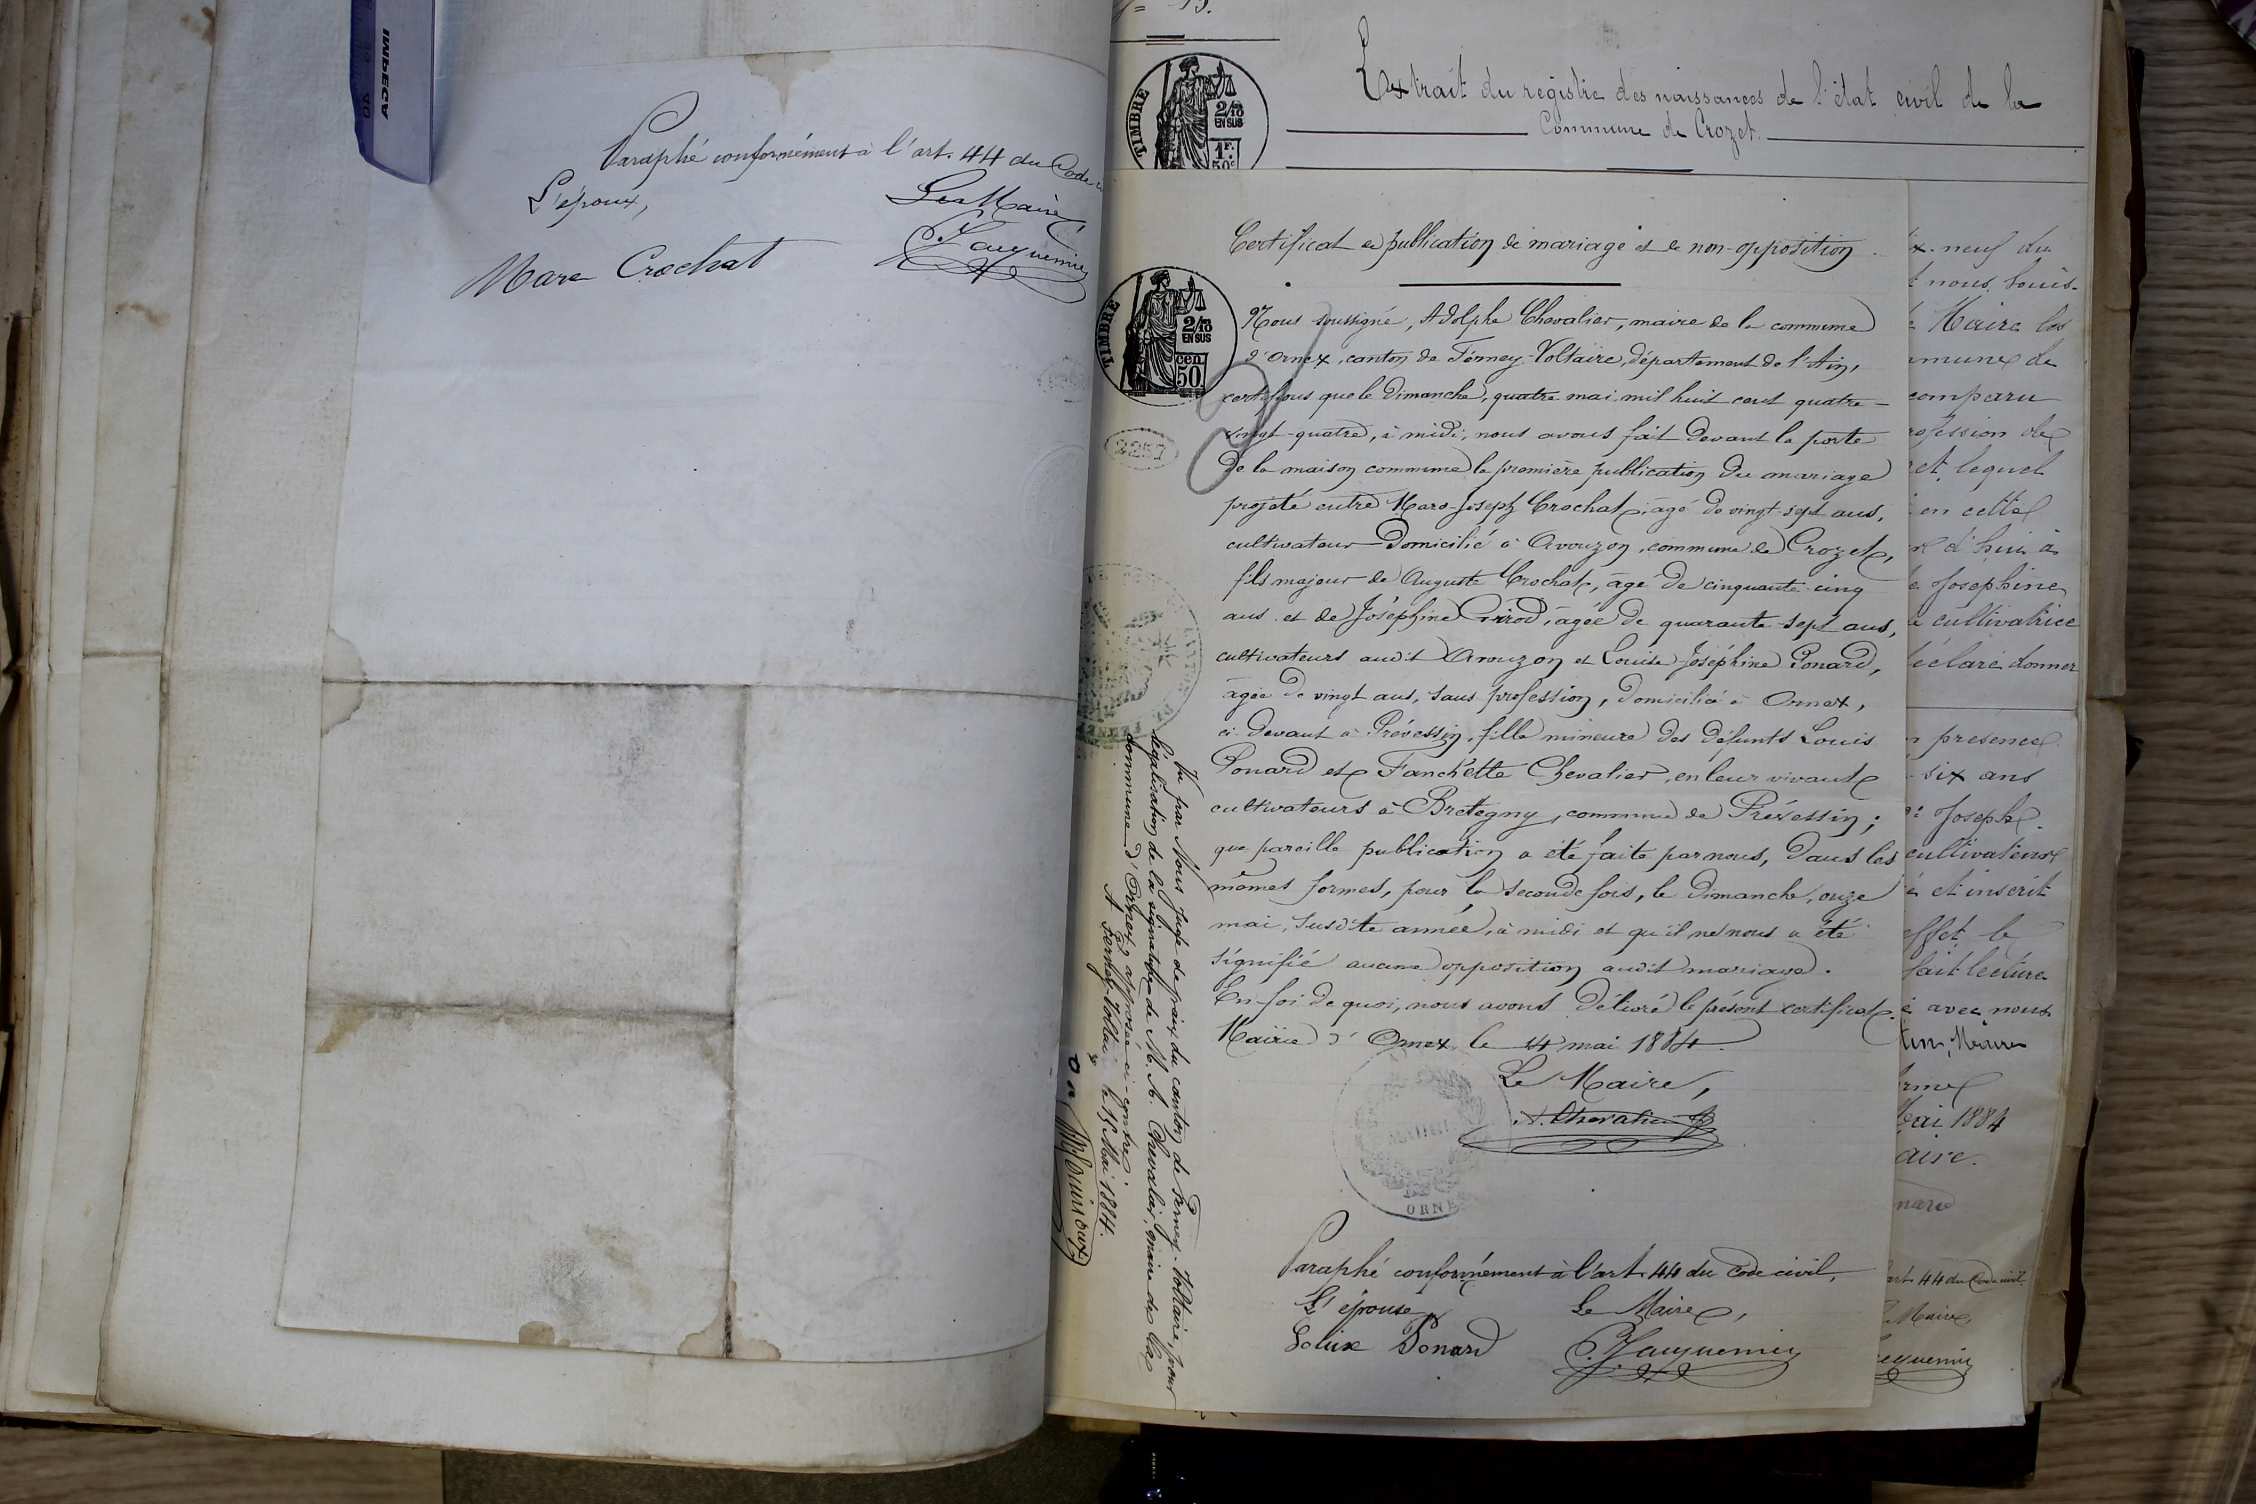 Paraphé conformément à l'art. 44 du Code
L'époux,
Le Maire,
Marc Crochat
C. Jauquemier
Extrait du registre des naissances de l'état civil de la
Commune de Crozet.
TIMBRE
2/10
EN SUS
1F.
50c
Certificat de publication de mariage et de non-opposition.
TIMBRE
2/10
EN SUS
cen
50
2257
Nous soussigné, Adolphe Chevalier, maire de la commune
d'Ornex, canton de Ferney-Voltaire, département de l'Ain,
certifions que le Dimanche, quatre mai mil huit cent quatre-
vingt-quatre, à midi, nous avons fait devant la porte
de la maison commune la première publication du mariage
projeté entre Marc-Joseph Crochat, âgé de vingt-sept ans,
cultivateur domicilié à Avouzon, commune de Crozet,
fils majeur de Auguste Crochat, âgé de cinquante-cinq
ans et de Joséphine Girod, âgée de quarante-sept ans,
cultivateurs audit Avouzon et Louise Joséphine Ponard,
âgée de vingt ans, sans profession, domiciliée à Ornex,
ci-devant à Prévessin, fille mineure des défunts Louis
Ponard et Fanchette Chevalier, en leur vivant
cultivateurs à Bretegny, commune de Prévessin;
que pareille publication a été faite par nous, dans les
mêmes formes, pour la seconde fois, le Dimanche, onze
mai, susdite année, à midi et qu'il ne nous a été
signifié aucune opposition audit mariage.
En foi de quoi, nous avons délivré le présent certificat.
Mairie d'Ornex le 14 mai 1884.
Le Maire,
A. Chevalier
ORNEX
Paraphé conformément à l'art. 44 du Code civil,
L'épouse
Le Maire,
Ponard
C. Jauquemier
Vu par Nous Juge de paix du canton de Ferney-Voltaire, pour
légalisation de la signature de M. A. Chevalier, maire de la
commune d'Ornex, apposée ci-contre.
A Ferney-Voltaire le 15 Mai 1884.
neuf du
nous, Louis-
Maire
de
comparu
profession de
lequel
en cette
d'hui à
Joséphine
cultivatrice
déclaré donner
présence
six ans
Joseph
cultivateur
et inscrit
effet le
fait lecture
avec nous
Maire
Mai 1884
art. 44 du Code civil
Maire,